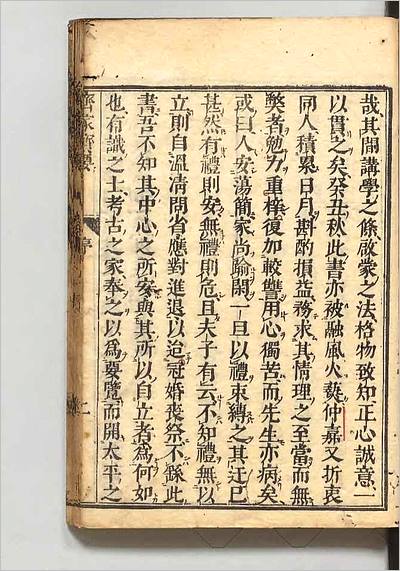 哉其開講學之條啟蒙之法格物致知正心誠意一
以貫之矣癸丑秋此書亦被融風火蓺仲嘉又折衷
同人積累日月斟酌損益務求其情理之至當而無
獘者勉力重梓復加較讐用心獨苦而先生亦病矣
或曰人安蕩簡家尚踰閑一旦以禮束縛之其迂已
甚然有禮則安無禮則危且夫子有云不知禮無以
立則自溫凊問省應對進退以迨冠婚喪祭不繇此
書吾不知其中心之所安與其所以自立者為何如
也有識之士考古之家奉之以爲要覽而開太平之
齊家寶要
序